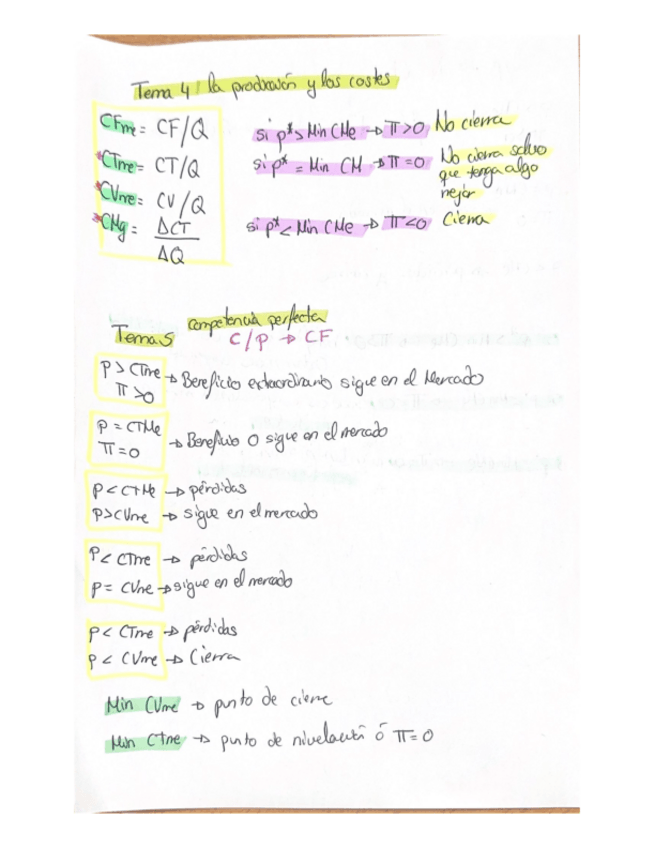 Tema 4: la producción y los costes
CFme = CF/Q
CTme = CT/Q
CVme = CV/Q
CMg = ΔCT
ΔQ
si p* > Min CMe → Π>0 No cierra
si p* = Min CM → Π=0 No cierra salvo
que tenga algo
mejor
si p* < Min CMe → Π<0 Cierra
Tema 5 competencia perfecta
C/P → CF
P > CTme → Beneficio extraordinario sigue en el Mercado
Π>0
P = CTMe → Beneficio 0 sigue en el mercado
Π=0
P < CTMe → pérdidas
P > CVme → sigue en el mercado
P < CTme → pérdidas
P = CVme → sigue en el mercado
P < CTme → pérdidas
P < CVme → Cierra
Min CVme → punto de cierre
Min CTme → punto de nivelación ó Π=0